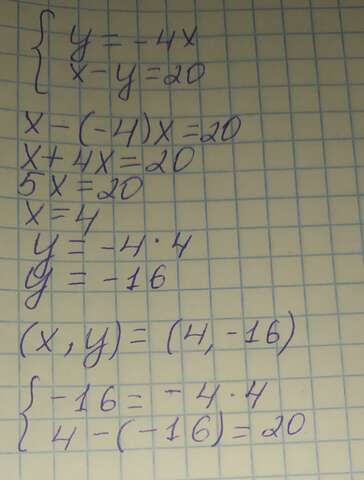 { y = -4x
x - y = 20
x - (-4)x = 20
x + 4x = 20
5x = 20
x = 4
y = -4 · 4
y = -16
(x, y) = (4, -16)
{ -16 = -4 · 4
4 - (-16) = 20